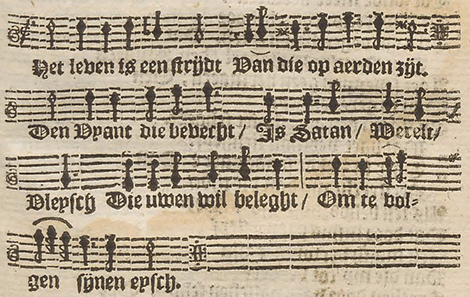 Het leven is een strijdt Van die op aerden zijt.
Den Vyant die bevecht / Is Satan / Werelt /
Vleysch Die uwen wil beleght / Om te vol-
gen sijnen eysch.